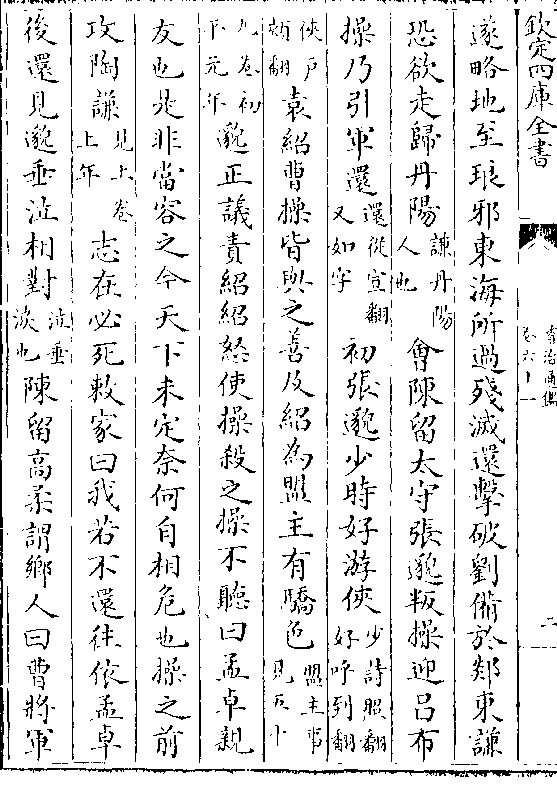 欽定四庫全書
資治通鑑
卷六十一
二
遂略地至琅邪東海所過殘滅還擊破劉備於郯東謙
恐欲走歸丹陽謙丹陽人也會陳留太守張邈叛操迎呂布
操乃引軍還還從宣翻又如字初張邈少時好游俠少詩照翻好呼到翻
俠戶頰翻袁紹曹操皆與之善及紹為盟主有驕色盟主事見五十
九卷初平元年邈正議責紹紹怒使操殺之操不聽曰孟卓親
友也是非當容之今天下未定奈何自相危也操之前
攻陶謙見上卷上年志在必死敕家曰我若不還往依孟卓
後還見邈垂泣相對泣垂涙也陳留高柔謂鄉人曰曹將軍